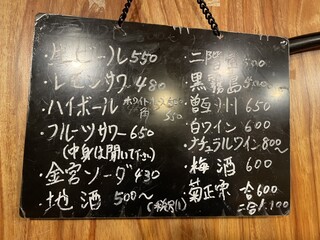 ・生ビール 550
・レモンサワー 480
・ハイボール ホワイトホース 500
角 550
・フルーツサワー 650
(中身は聞いて下さい)
・金宮ソーダ 430
・地酒 500〜
・二階堂 500
・黒霧島 500
・曽我 650
・白ワイン 600
・ナチュラルワイン 800〜
・梅酒 600
・菊正宗 一合600
二合1,100
(税別)